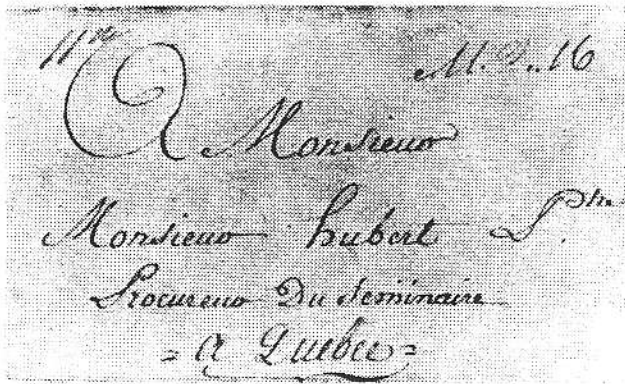 A Monsieur
Monsieur hubert P.tre
Procureur Du Seminaire
= A Quebec =